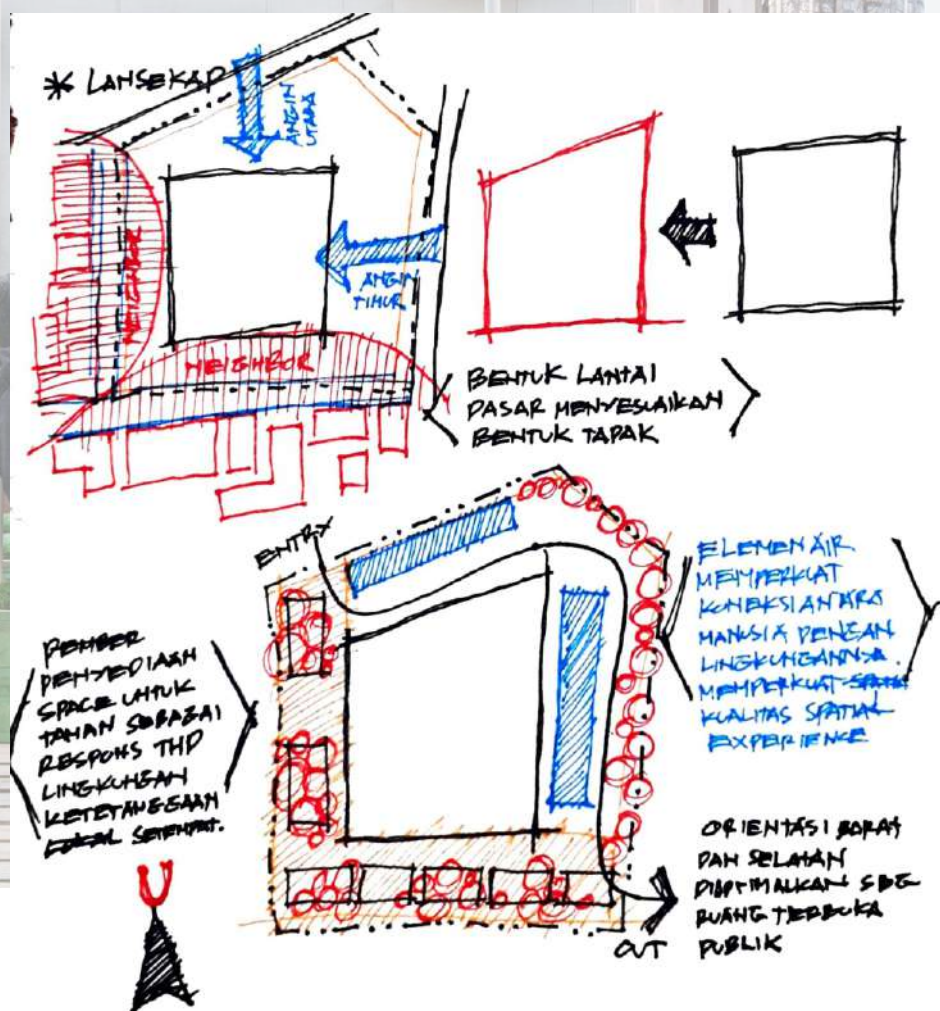 * LANSEKAP
ANGIN
UTARA
NEIGHBOR
ANGIN
TIMUR
NEIGHBOR
BENTUK LANTAI
DASAR MENYESUAIKAN
BENTUK TAPAK
ENTRY
ELEMEN AIR
MEMPERKUAT
KONEKSI ANTARA
MANUSIA DENGAN
LINGKUNGANNYA.
MEMPERKUAT
KUALITAS SPATIAL
EXPERIENCE
PEMBER
PENYEDIAAN
SPACE UNTUK
TAMAN SEBAGAI
RESPONS THD
LINGKUNGAN
KETETANGGAAN
LOKAL SETEMPAT.
ORIENTASI BARAT
DAN SELATAN
DIOPTIMALKAN SBG
RUANG TERBUKA
PUBLIK
OUT
U